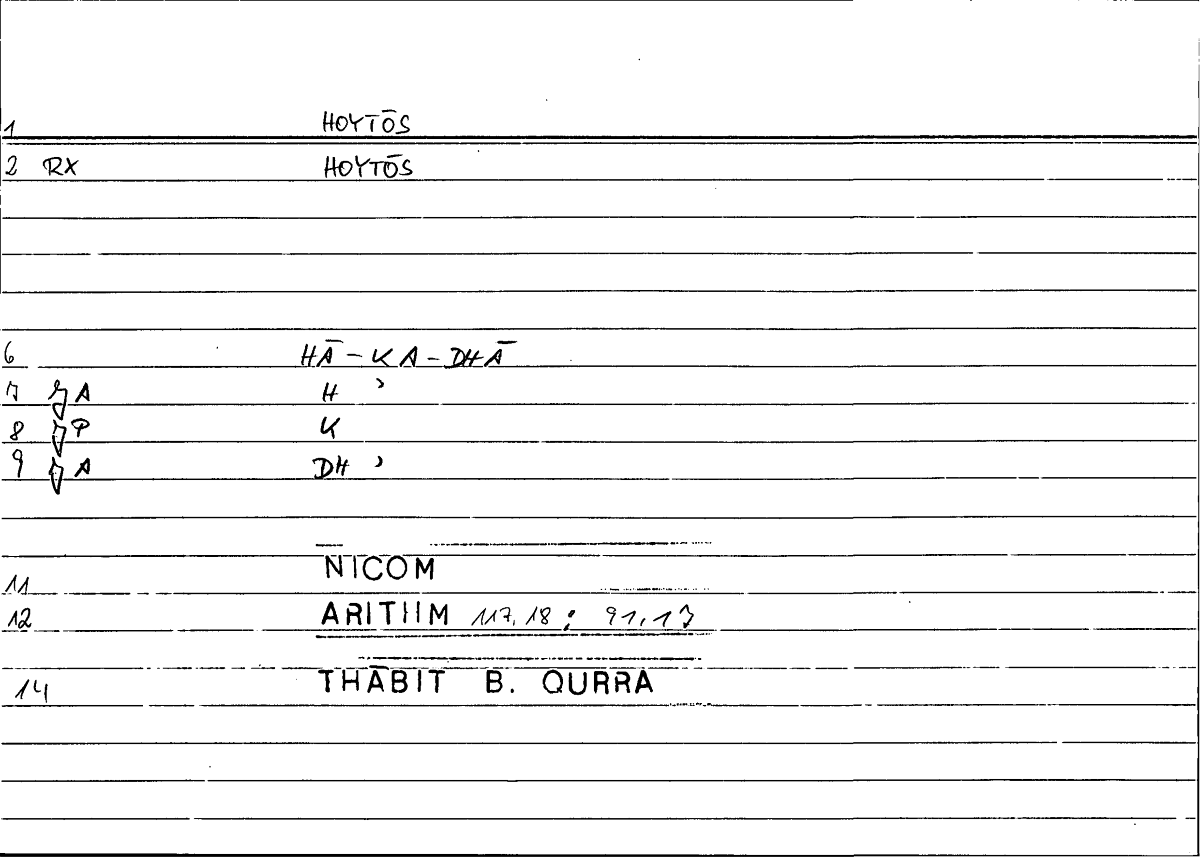 1 HOYTŌS
2 RX HOYTŌS
6 HĀ-KA-DHĀ
7 A H ʾ
8 P K
9 A DH ʾ
11 NICOM
12 ARITHM 117,18; 91,17
14 THĀBIT B. QURRA